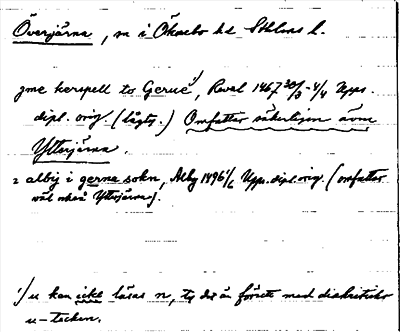 Överjärna, sn i Öknebo hd Sthlms l.
jme kerspell to Gerue¹⁾, Reval 1467 30/3-4/4 Upps.
dipl. orig. (lågty.) Omfattar säkerligen även
Ytterjärna.
2 albij i gerna sokn, Alby 1496 1/6 Upps. dipl. orig. (omfattar
väl också Ytterjärna).
¹⁾ u kan icke läsas n, ty det är försett med diakritiska
u-tecken.